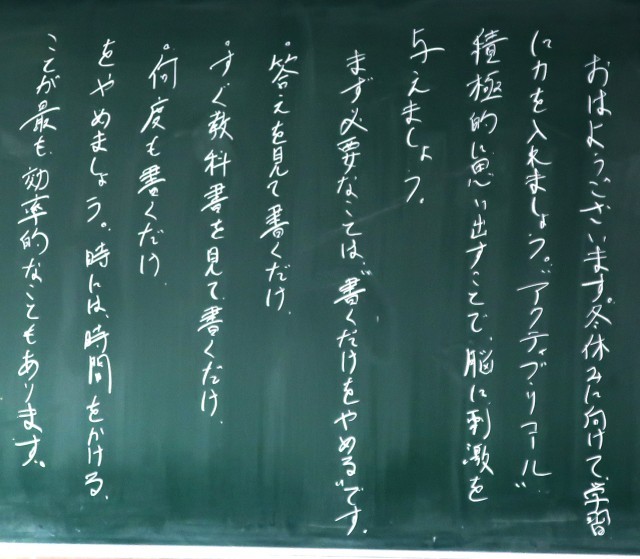 おはようございます。冬休みに向けて、学習
に力を入れましょう。"アクティブ・リコール"
積極的に思い出すことで、脳に刺激を
与えましょう。
まず必要なことは、"書くだけをやめる"です。
・答えを見て書くだけ、
・すぐ教科書を見て、書くだけ、
・何度も書くだけ、
をやめましょう。時には、時間をかける、
ことが最も、効率的なこともあります。